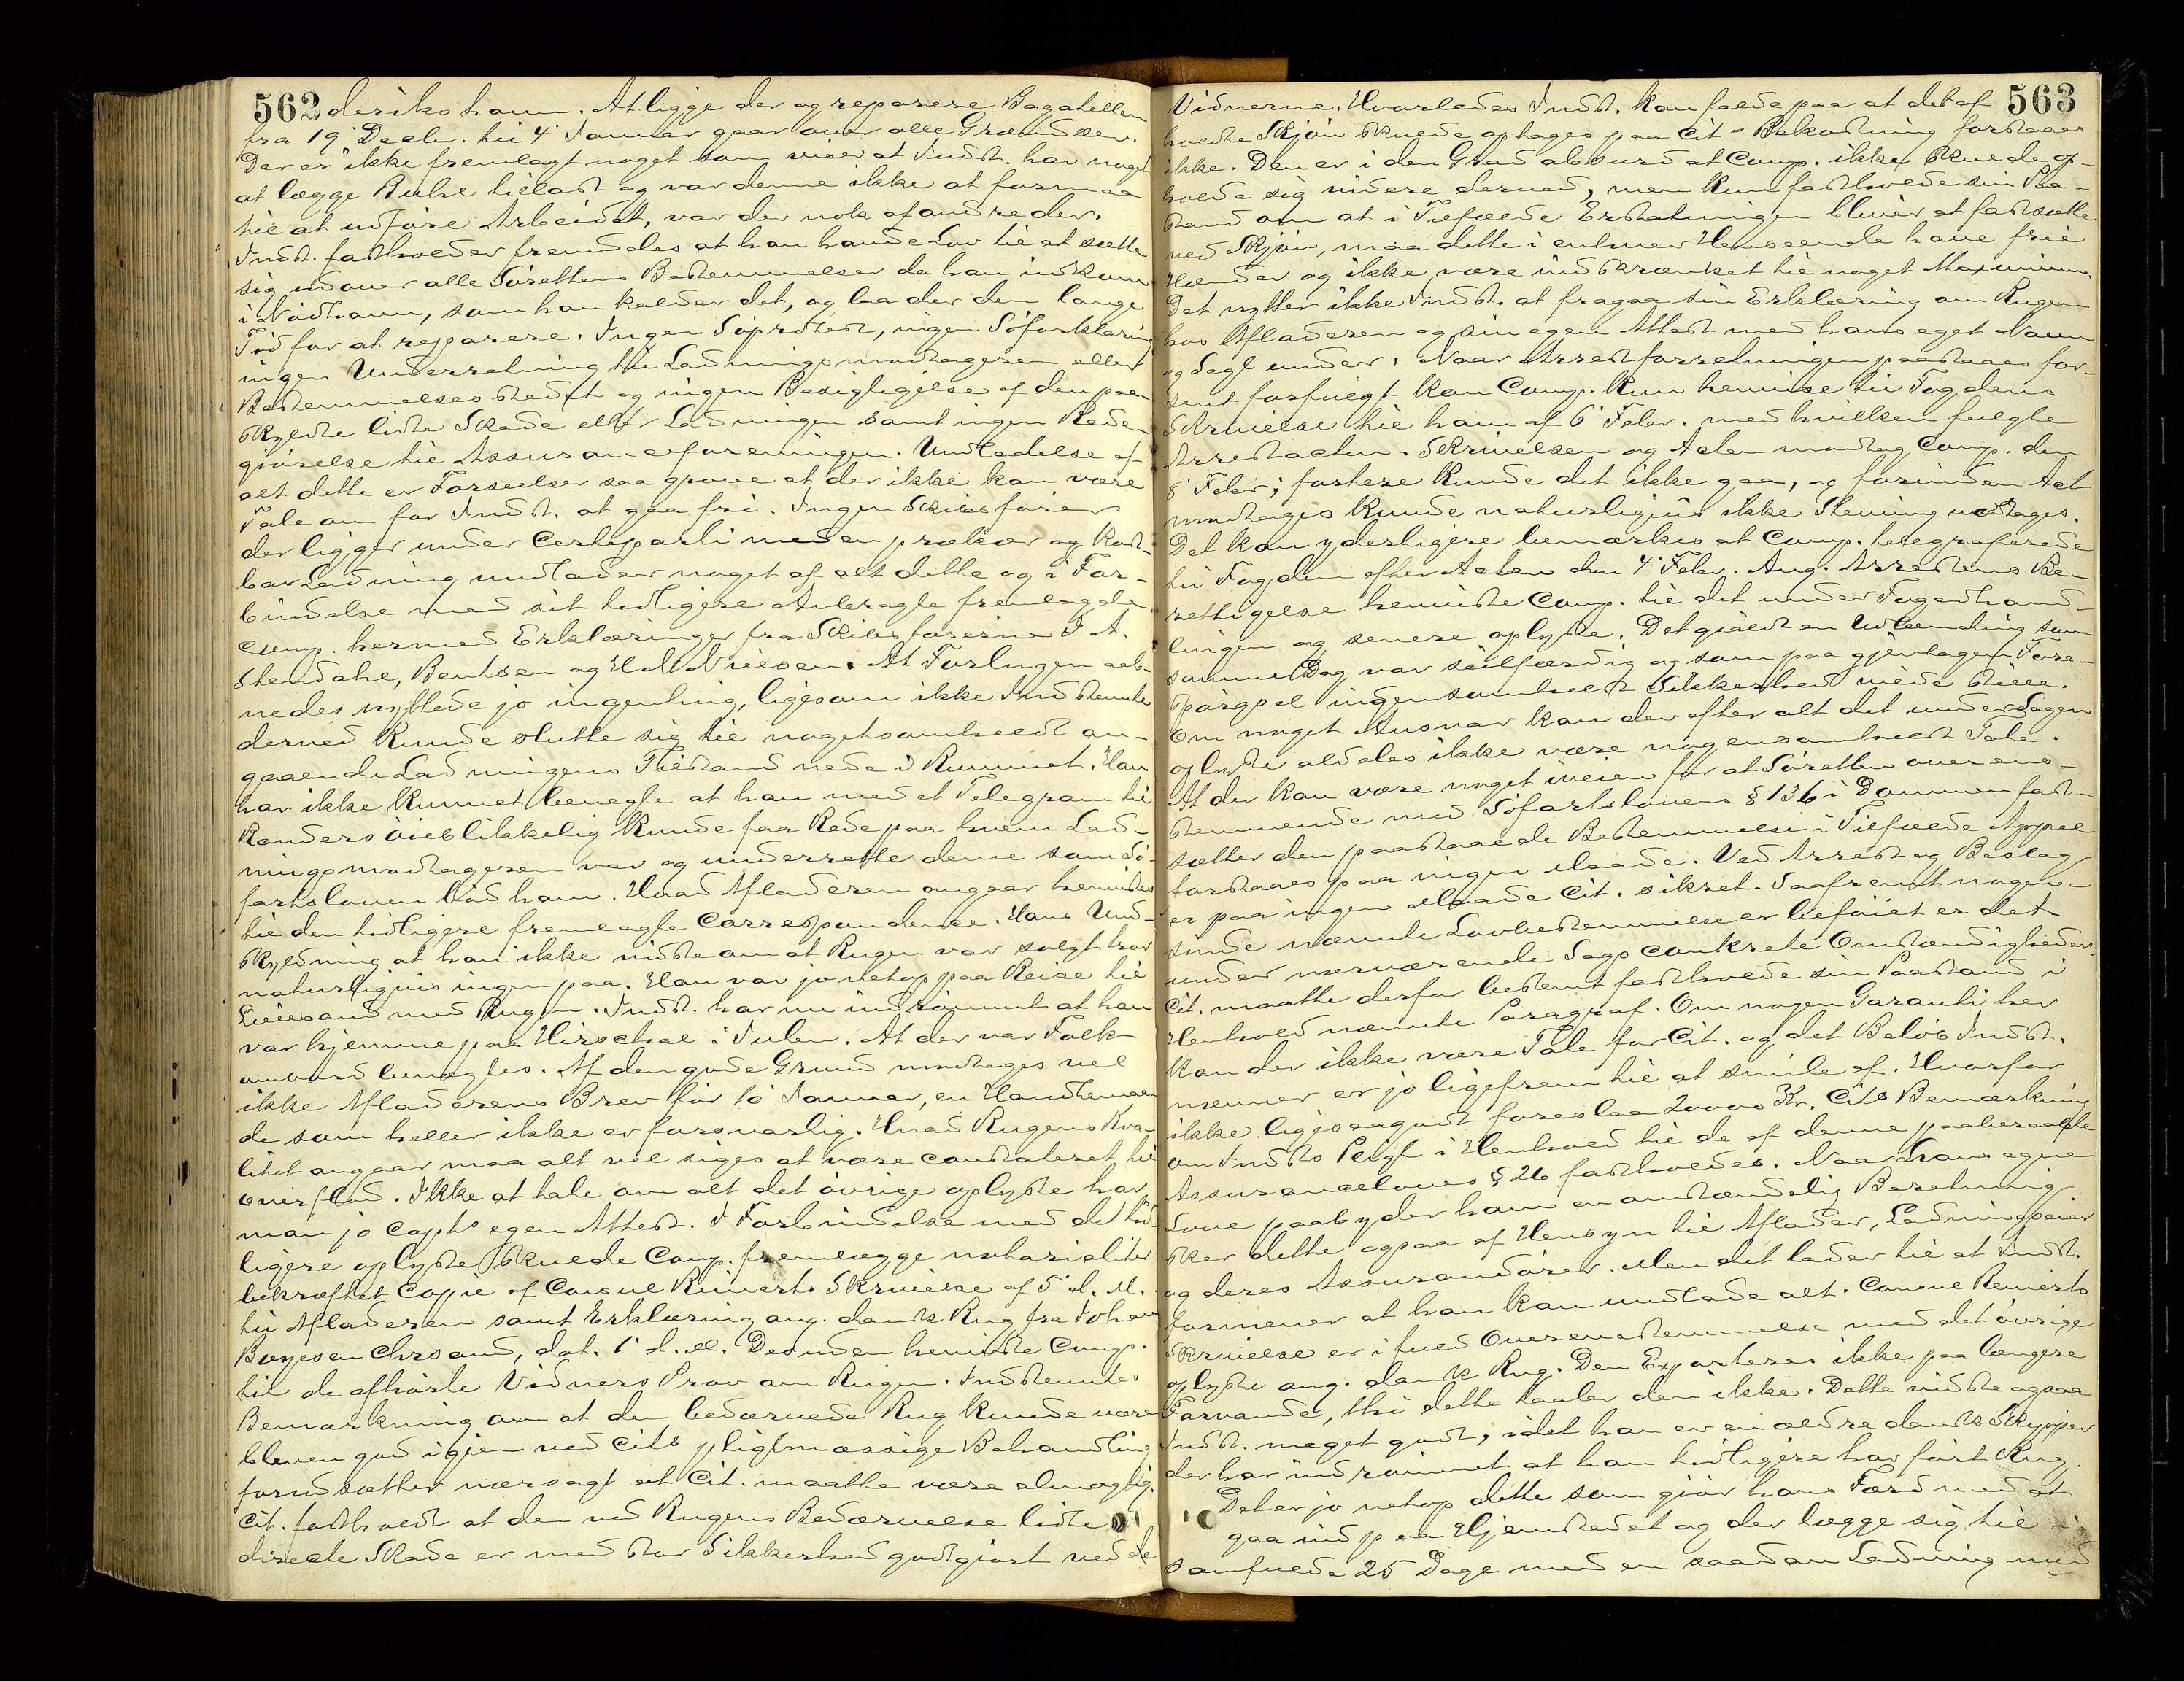 562 derikshavn. At ligge der og reparere Bagatellen
fra 19' Decbr. til 4' Januar gaar over alle Grændser.
Der er ikke fremlagt noget som viser at Indst. har noget
at lægge Buhl tillast og var denne ikke at formaa
til at udføre Arbeidet, var der nok af andre der.
Indst. fastholder fremdeles at han havde Lov til at sætte
sig udover alle Sørettens Bestemmelser da han indkom
i Nødhavn, som han kalder det, og laa der den lange
Tid for at reparere. Ingen Søprotest, ingen Søforklaring
ingen Underretning til Ladningsmodtageren eller
Bestemmelsesstedet og ingen Besigtigelse af den paa-
skyldte lidte Skade eller Ladningen samt ingen Rede-
giørelse til Assuranceforeningen. Undladelse af
alt dette er Forseelser saa grove at der ikke kan være
Tale om for Indst. at gaa fri. Ingen Skibsfører
der ligger under Certeparti med en prekær og kost-
bar Ladning undlader noget af alt dette og i For-
bindelse med sit tidligere Anbragte fremlagde
Comp. hermed Erklæringer fra Skibsførerne J. A.
Stendahl, Bentsen og Nielsen. At Forlugen aab-
nedes nyttede jo ingenting, ligesom ikke Indstevnte
derved kunde slutte sig til nogetsomhelst an-
gaaende Ladningens Tilstand nede i Rummet. Han
har ikke kunnet benegte at han med et Telegram til
Randers øieblikkelig kunde faa Rede paa hvem Lad-
ningsmodtageren var og underrette denne som Sø-
fartsloven bød ham. Hvad Afladeren angaar henvistes
til den tidligere fremlagte Correspondence. Hans Und-
skyldning at han ikke vidste om at Rugen var solgt har
naturligvis ingen paa. Han var jo netop paa Reise til
Lillesand med Rugen. Indst. har nu indrømmet at han
var hjemme paa Hirschol i Julen. At der var Folk
ombord benegtes. Af den gode Grund modtages vel
ikke Afladerens Brev før 10 Januar, en
de som heller ikke er forsvarlig. Hvad Rugens Kva-
litet angaar maa alt vel siges at være constateret til
overflod. Ikke at tale om alt det øvrige oplyste har
man jo Capts egen Attest. I Forbindelse med det tid-
ligere oplyste skulde Comp. fremlægge notarialiter
bekræftet Copie af Consul Reinerts Skrivelse af 5' d. M.
til Afladeren samt Erklæring ang. dansk Rug fra Johan
Boyesen Chrsand, dat. 1' d. M. Desuden henviste Comp.
til de afhørte Vidners Prov om Rugen. Indstevntes
Bemærkning om at den bedærvede Rug kunde være
bleven god igjen ved Cits pligtmæssige Behandling
forudsætter nærsagt at Cit. maatte være almægtig.
Cit. fastholdt at den ved Rugens Bedærvelse lidte
directe Skade er med stor Sikkerhed godtgiort ved de
563
Vidnerne. Hvorledes Indst. kan falde paa at det af
holdte Skjøn skulde optages paa Cit's Bekostning forstaaes
ikke. Den er i den Grad absurd at Comp. ikke skulde op-
holde sig videre derved, men kun fastholde sin Paa-
stand om at i Tilfælde Erstatningen bliver at fastsætte
ved Skjøn, maa dette i enhver Henseende have frie
Hænder og ikke være indskrænket til noget Maximum.
Det nytter ikke Indst. at fragaa sin Erklæring om Rugen
hos Afladeren og sin egen Attest med hans eget Navn
og Segl under. Naar Arrestforretningen paastaaes for-
sent forfulgt kan Comp. kun henvise til Fogdens
Skrivelse til ham af 6' Febr. med hvilken fulgte
Arrestacten. Skrivelsen og Acten modtog Comp. den
8' Febr; fortere kunde det ikke gaa, og forinden Act
modtages kunde naturligvis ikke Stevning udtages.
Det kan yderligere bemærkes at Comp. telegraferede
til Fogden efter Acten den 4' Febr. Ang. Arrestens Be-
rettigelse henviste Comp. til det under Fogedhand-
lingen og senere oplyste. Det gialdt en Udlænding som
samme Dag var seilfærdig og som paa gjentagen Fore-
spørgsel ingensomhelst Sikkerhed vilde stille.
Om noget Ansvar kan der efter alt det under Sagen
oplyste aldeles ikke være nogensomhelst Tale.
At der kan være noget iveien for at Søretten overens-
stemmende med Søfartslovens § 136 i Dommen fast-
sætter den paastaaede Bestemmelse i Tilfælde Appel
forstaaes paa ingen Maade. Ved Arrest og Beslag
er paa ingen Maade Cit. sikret. Saafremt nogen-
sinde nævnte Lovbestemmelse er beføiet er det
under nærværende Sags conkrete Omstændigheder.
Cit. maatte derfor bestemt fastholde sin Paastand i
Henhold nævnte Paragraf. Om nogen Garanti her
kan der ikke være Tale for Cit. og det Beløb Indst.
nævner er jo ligefrem til at smile af. Hvorfor
ikke ligesaagodt foreslaa 20000 Kr. Cits Bemærkning
om Indsts Pligt i Henhold til de af denne paaberaabte
Assurancelovs § 26 fastholdes. Naar hans egne
Love paabyder ham en omstændelig Beretning
sker dette ogsaa af Hensyn til Aflader, Ladningseier
og deres Assurandører. Men det lader til at Indst.
formener at han kan undlade alt. Consul Reinerts
Skrivelse er i fuld Overensstemmelse med det øvrige
oplyste ang. dansk Rug. Den Exporteres ikke paa længere
Farvande, thi dette taaler den ikke. Dette vidste ogsaa
Indst. meget godt, idet han er en ældre dansk Skipper
der har indrømmet at han tidligere har ført Rug.
Det er jo netop dette som giør hans Færd ved at
gaa ind paa Hjemstedet og der lægge sig til i
samfulde 25 Dage med en saadan Ladning med